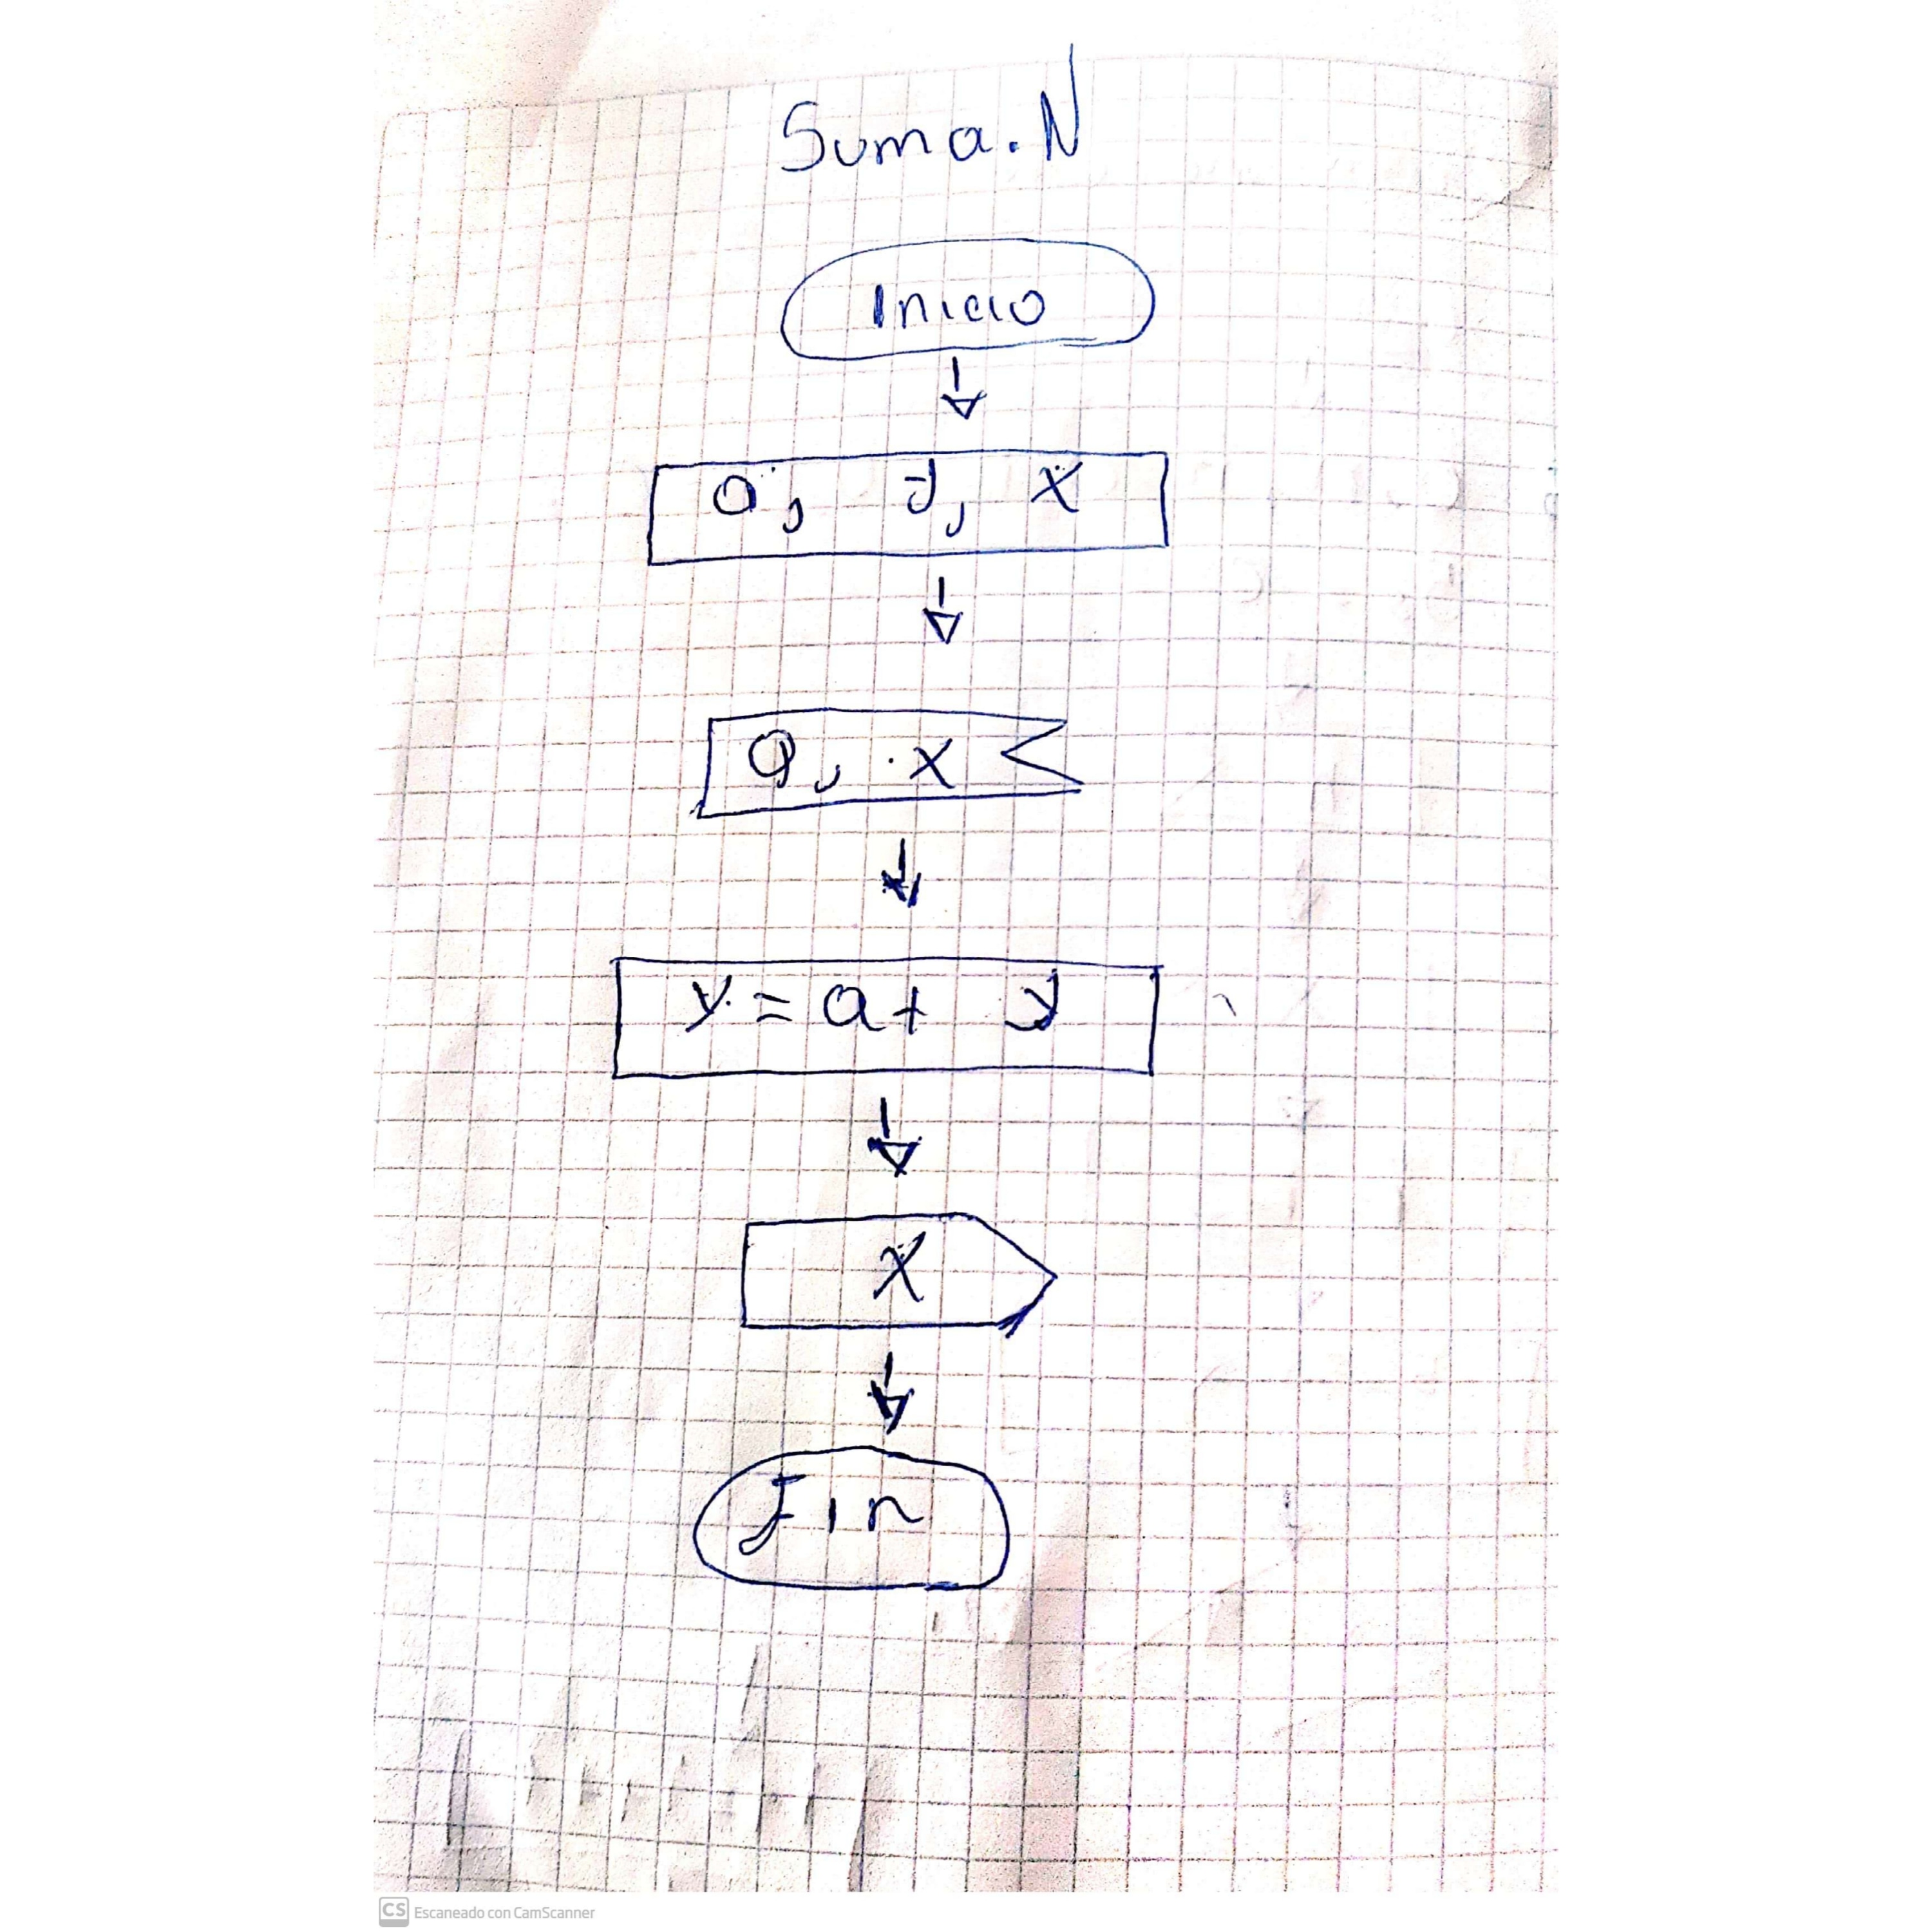 Suma.N
Inicio
a, y, x
a, x
y = a + y
x
Fin
CS Escaneado con CamScanner